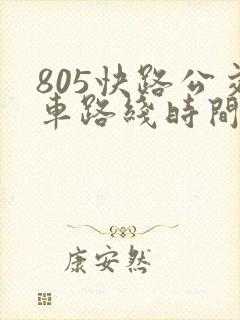 805快路公交
車路綫時間
康安然